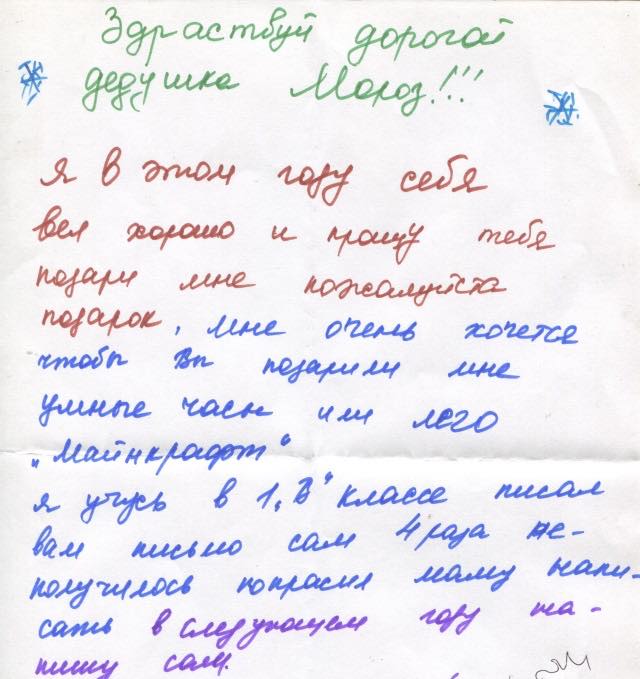 Здраствуй дорогой
дедушка Мороз!!!
я в этом году себя
вел хорошо и прошу тебя
подари мне пожалуйста
подарок, мне очень хочется
чтобы Вы подарили мне
умные часы или лего
„Майнкрафт“
я учусь в 1„В“ классе писал
вам письмо сам 4 раза не-
получилось попрасил маму напи-
сать в следующем году на-
пишу сам.